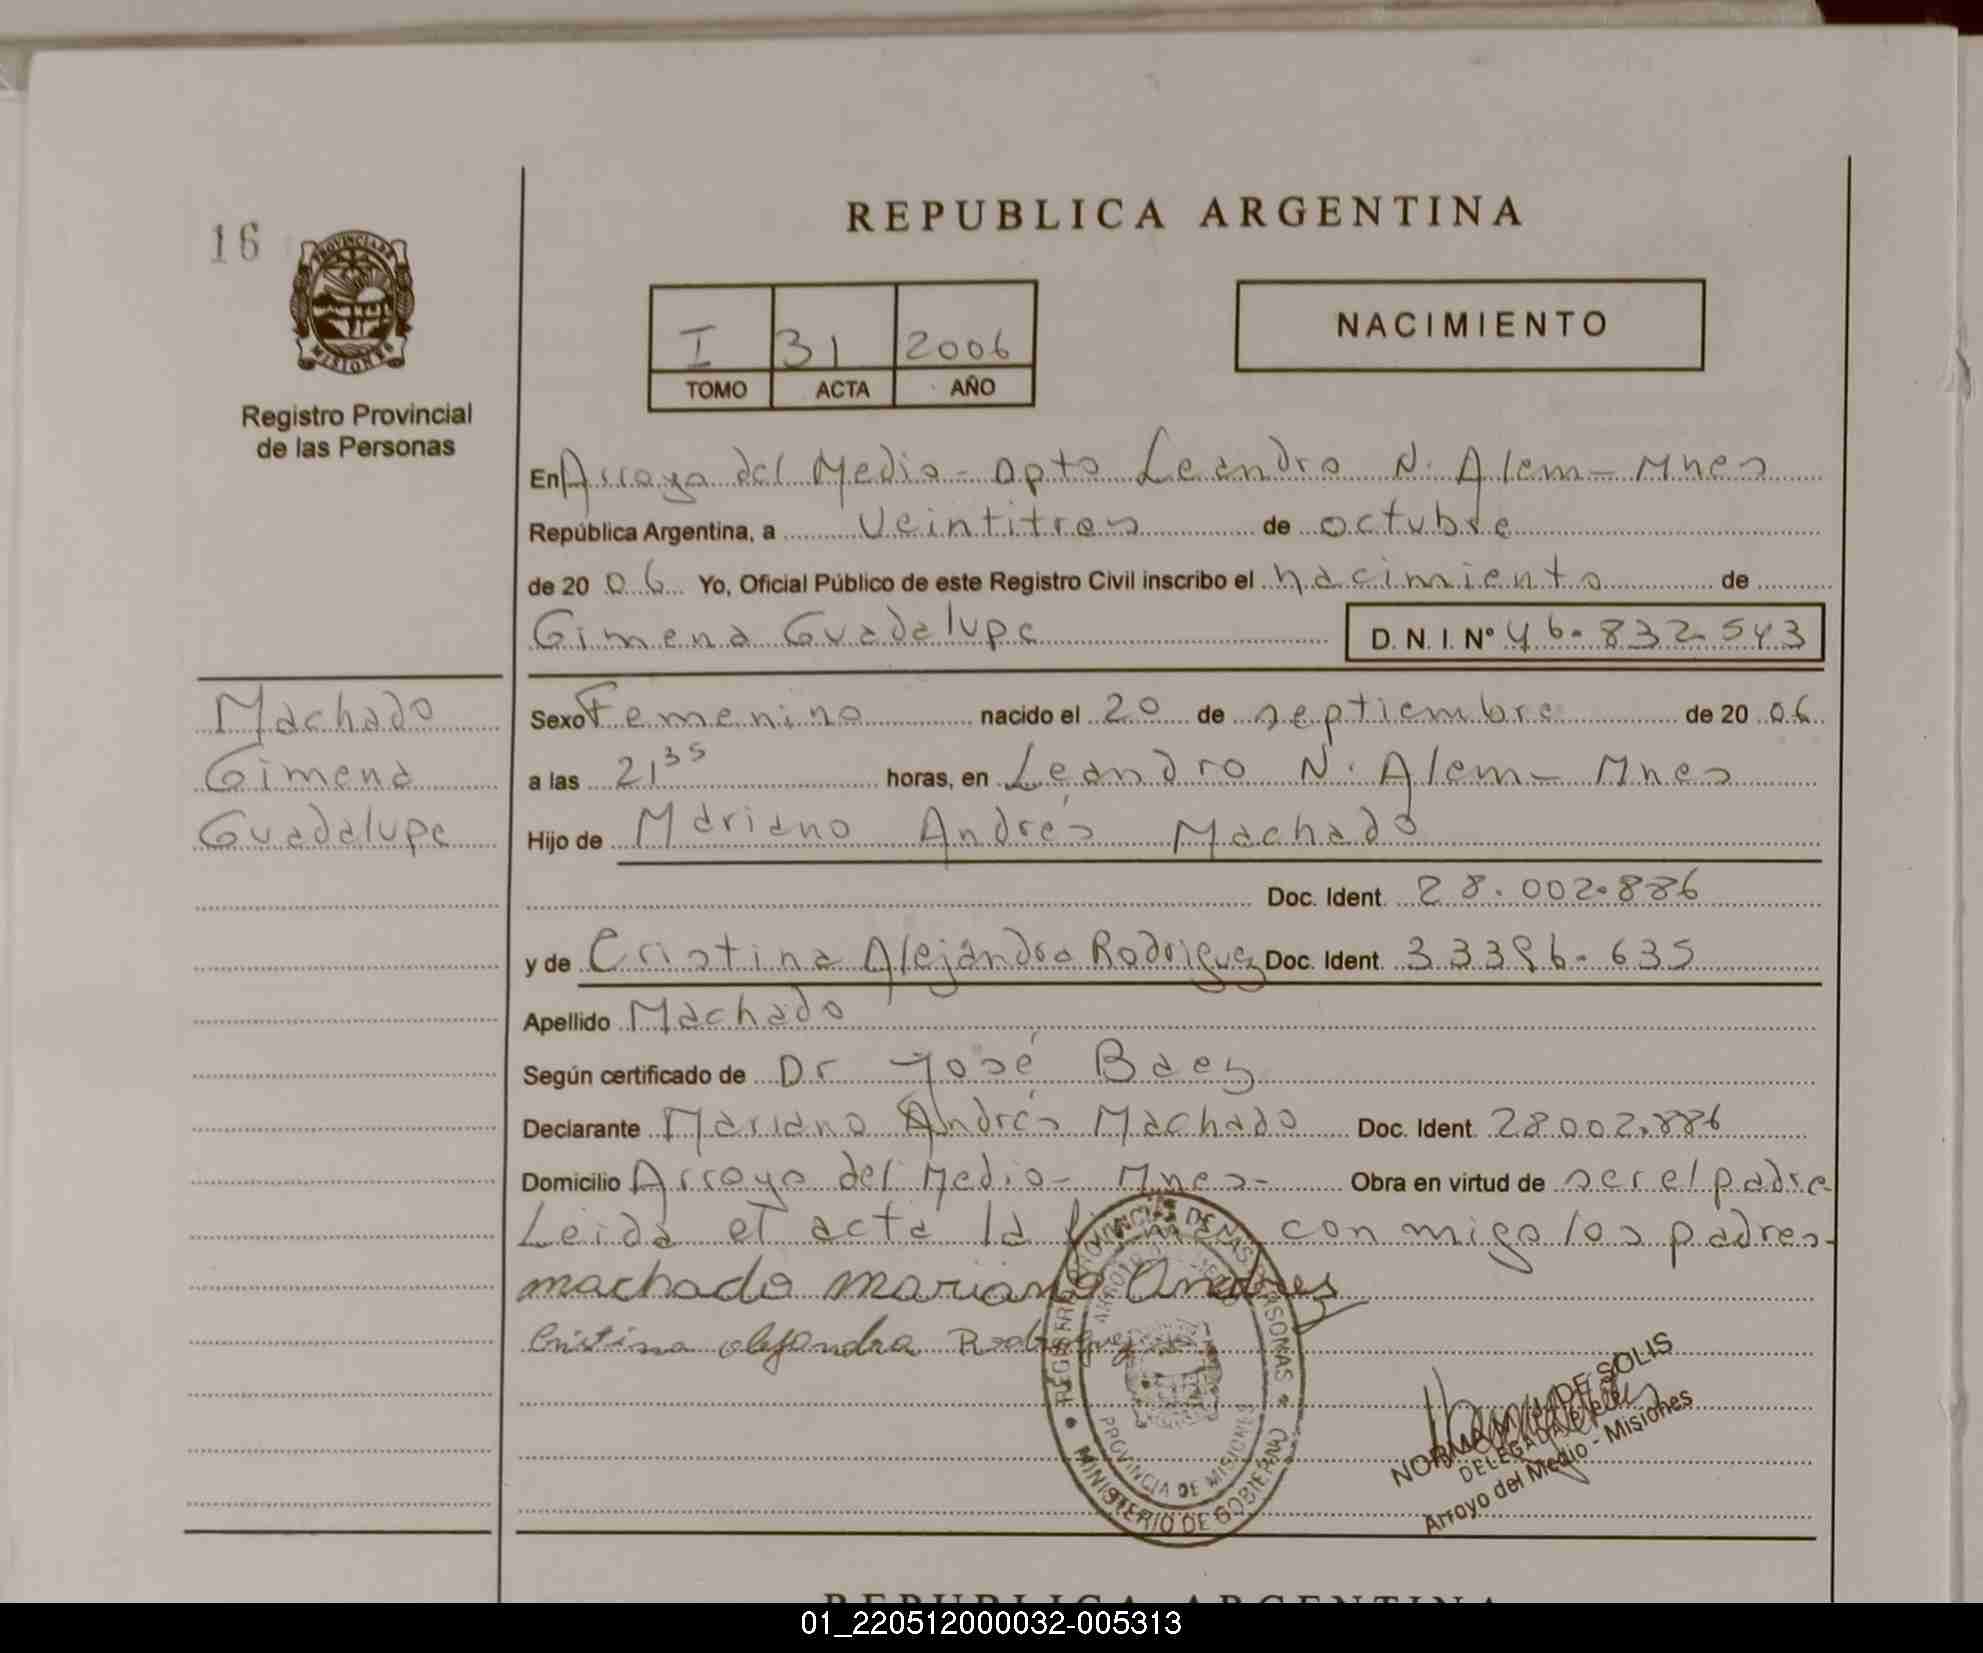 REPUBLICA ARGENTINA
16
PROVINCIA DE
MISIONES
Registro Provincial
de las Personas
I 31 2006
TOMO ACTA AÑO
NACIMIENTO
En Arroyo del Medio - Dpto Leandro N. Alem - Mnes
República Argentina, a Veintitres de octubre
de 20 06 Yo, Oficial Público de este Registro Civil inscribo el nacimiento de
Gimena Guadalupe D. N. I. Nº 46.832.543
Machado
Gimena
Guadalupe
Sexo Femenino nacido el 20 de septiembre de 20 06
a las 21 35 horas, en Leandro N. Alem - Mnes
Hijo de Mariano Andrés Machado
Doc. Ident. 28.002.886
y de Cristina Alejandra Rodriguez Doc. Ident. 33396.635
Apellido Machado
Según certificado de Dr José Baez
Declarante Mariano Andrés Machado Doc. Ident. 28002.886
Domicilio Arroyo del Medio - Mnes - Obra en virtud de ser el padre
Leida el acta la firman con migo los padres-
machado mariano Andres
Cristina alejandra Rodriguez
REGISTRO PROVINCIAL DE LAS PERSONAS
PROVINCIA DE MISIONES
MINISTERIO DE GOBIERNO
NORMA DE SOLIS
DELEGADA
Arroyo del Medio - Misiones
REPUBLICA ARGENTINA
01_220512000032-005313